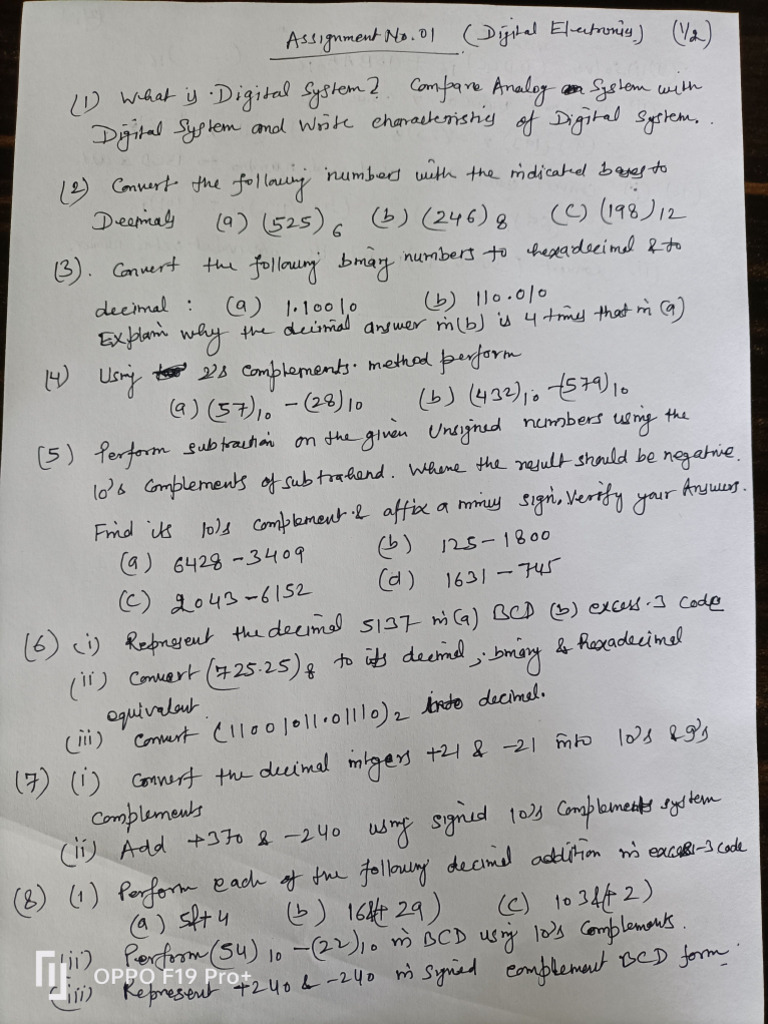 Assignment No. 01 (Digital Electronics) (1/2)
(1) What is Digital System? Compare Analog System with
Digital System and Write characteristics of Digital System.
(2) Convert the following numbers with the indicated bases to
Decimals (a) (525)6 (b) (246)8 (c) (198)12
(3). Convert the following binary numbers to hexadecimal & to
decimal : (a) 1.10010 (b) 110.010
Explain why the decimal answer in (b) is 4 times that in (a)
(4) Using 2's complements method perform
(a) (57)10 - (28)10 (b) (432)10 - (579)10
(5) Perform subtraction on the given Unsigned numbers using the
10's Complements of subtrahend. Where the result should be negative.
Find its 10's complement & affix a minus sign. Verify your Answers.
(a) 6428 - 3409 (b) 125 - 1800
(c) 2043 - 6152 (d) 1631 - 745
(6) (i) Represent the decimal 5137 in (a) BCD (b) excess-3 code
(ii) Convert (725.25)8 to its decimal, binary & hexadecimal
equivalent
(iii) Convert (11001011.01110)2 into decimal.
(7) (i) Convert the decimal intgers +21 & -21 into 10's & 9's
Complements
(ii) Add +370 & -240 using signed 10's Complements system
(8) (1) Perform each of the following decimal addition in excess-3 code
(a) 5 + 4 (b) 16 + 29) (c) 103 + 2)
(ii) Perform (54)10 - (22)10 in BCD using 10's Complements.
(iii) Represent +240 & -240 in Signed complement BCD form.
OPPO F19 Pro+